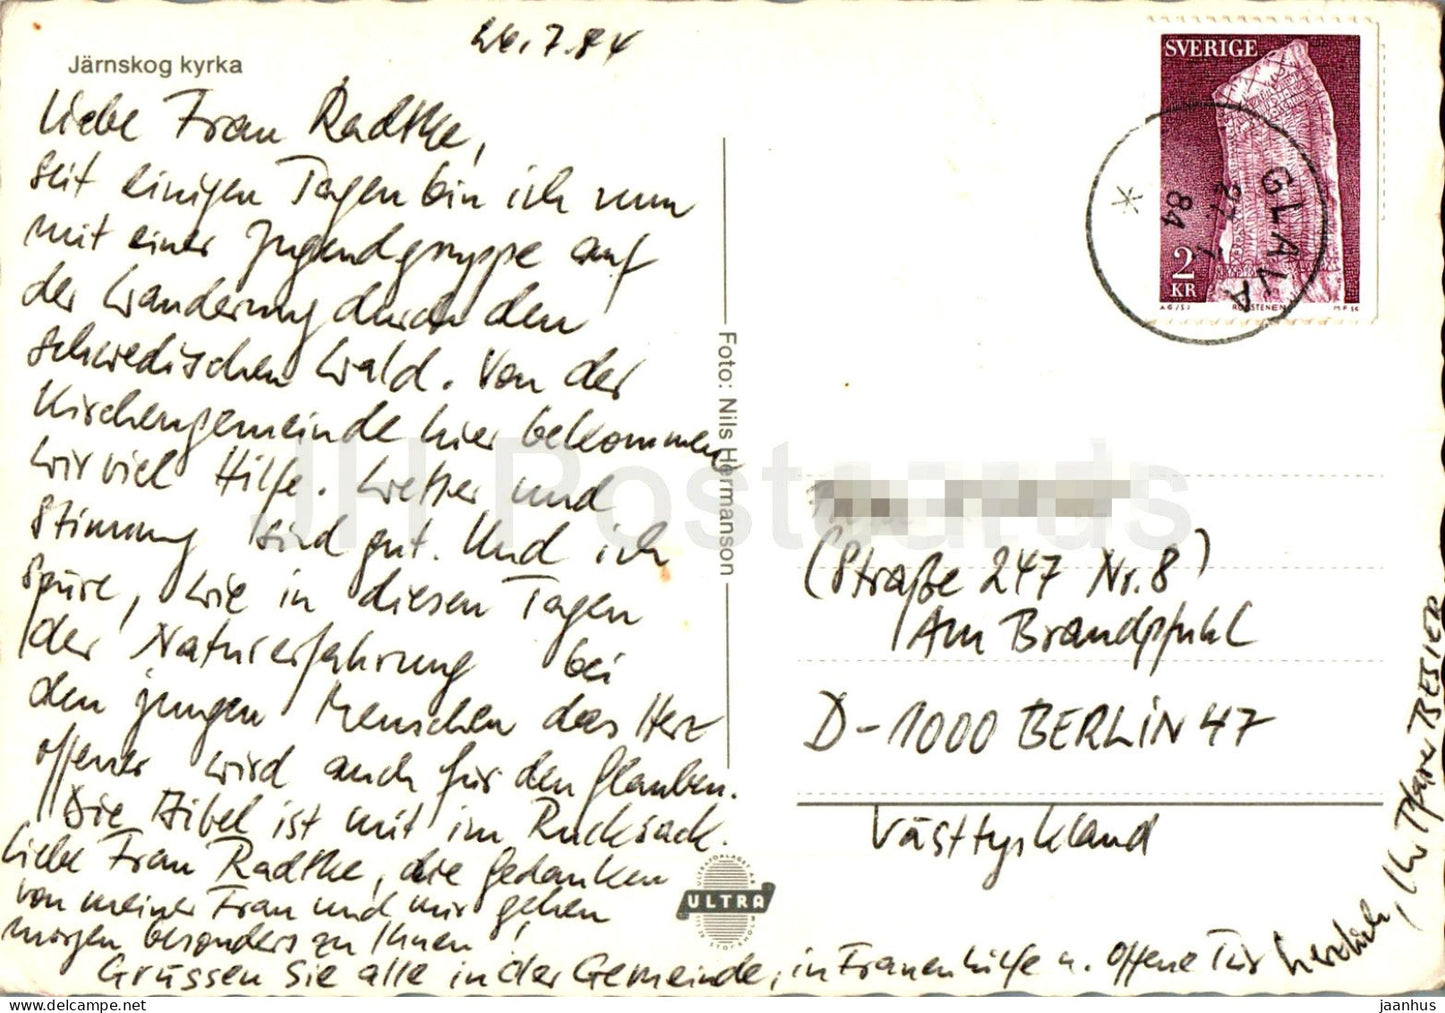 26.7.84
Järnskog kyrka
Liebe Frau Radtke,
seit einigen Tagen bin ich nun
mit einer Jugendgruppe auf
der Wanderung durch den
schwedischen Wald. Von der
Kirchengemeinde hier bekommen
wir viel Hilfe. Wetter und
Stimmung sind gut. Und ich
spüre, wie in diesen Tagen
der Naturerfahrung bei
den jungen Menschen das Herz
offener wird auch für den Glauben.
Die Bibel ist mit im Rucksack.
Liebe Frau Radtke, die Gedanken
von meiner Frau und mir gehen
morgen besonders zu Ihnen!
Grüssen Sie alle in der Gemeinde, in Frauenhilfe u. Offene Tür
herzlich, Ihr Pfarrer BESIER
Foto: Nils Hermanson
ULTRA
SVERIGE
2
KR
RÖKSTENEN
GLAVA
27 7
84
(Straße 247 Nr. 8)
Am Brandpfuhl
D-1000 BERLIN 47
Västtyskland
JH Postcards
jaanhus